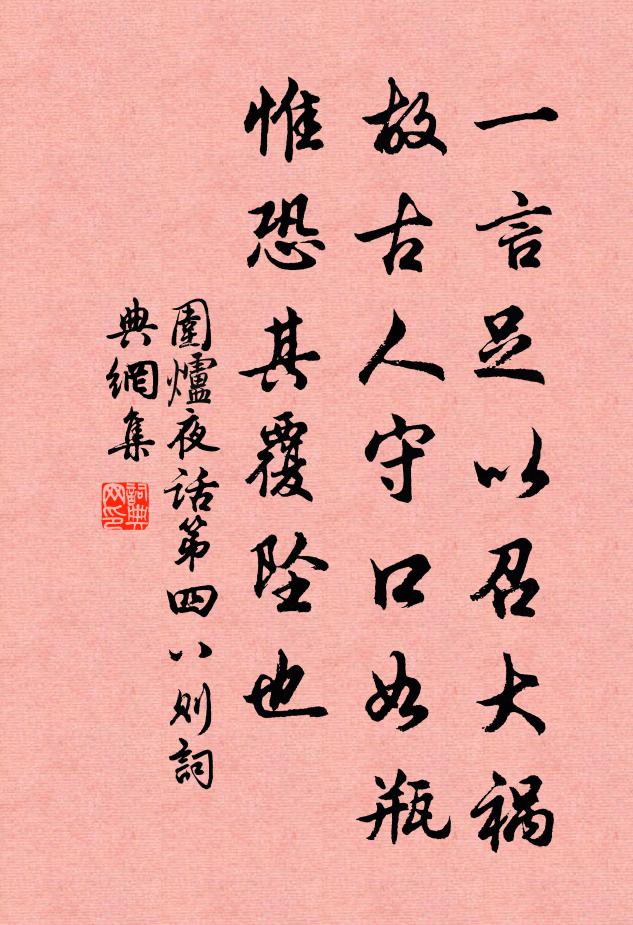 一言足以召大祸
故古人守口如瓶
惟恐其覆坠也
圍爐夜话第四八则詞
典網集
詞典
网印